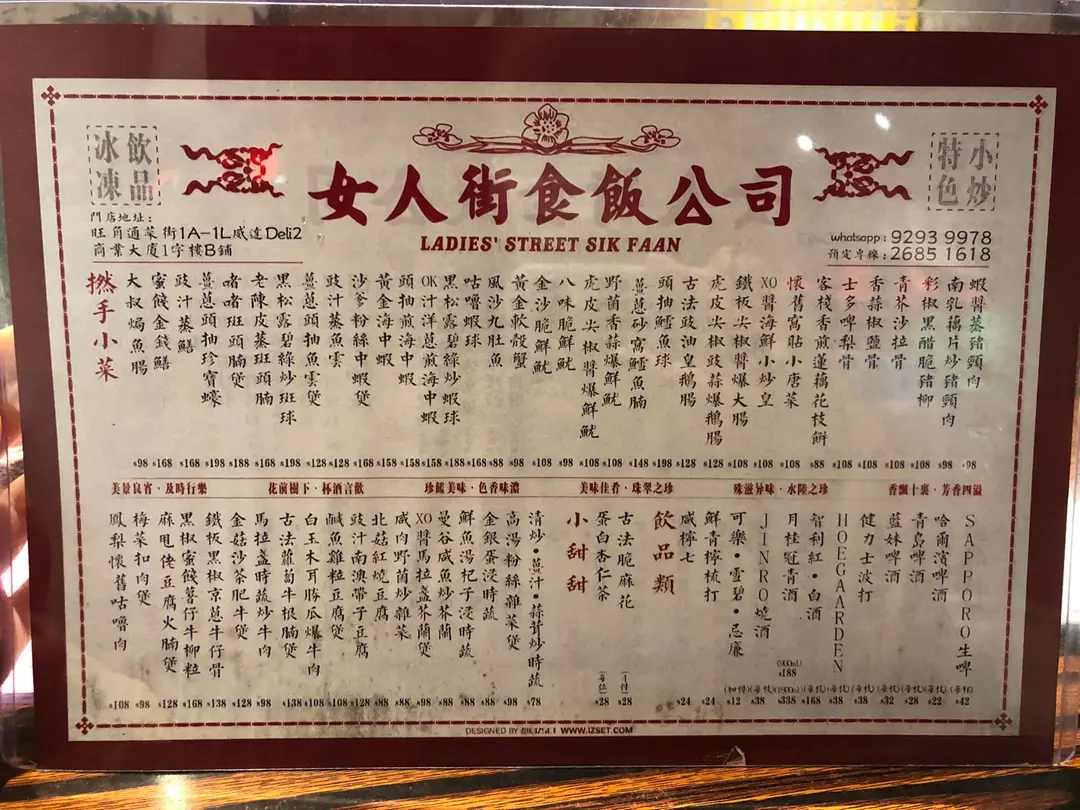 冰凍飲品
特色小炒
女人街食飯公司
LADIES' STREET SIK FAAN
門店地址：
旺角通菜街1A-1L威達Deli2
商業大廈1字樓B鋪
whatsapp：9293 9978
預定專線：2685 1618
撚手小菜
大叔焗魚腸 $98
蜜餞金錢鱔 $168
豉汁蒸鱔 $168
薑蔥頭抽珍寶蠔 $198
啫啫斑頭腩煲 $188
老陳皮蒸斑頭腩 $168
黑松露碧綠炒斑球 $198
薑蔥頭抽魚雲煲 $128
豉汁蒸魚雲 $128
沙爹粉絲中蝦煲 $168
黃金海中蝦 $158
頭抽煎海中蝦 $158
OK汁洋蔥煎海中蝦 $158
黑松露碧綠炒蝦球 $188
咕嚕蝦球 $168
風沙九肚魚 $88
黃金軟殼蟹 $98
金沙脆鮮魷 $108
八味脆鮮魷 $98
虎皮尖椒醬爆鮮魷 $108
野菌香蒜爆鮮魷 $108
薑蔥砂窩鱸魚腩 $148
頭抽鱸魚球 $198
古法豉油皇鵝腸 $128
虎皮尖椒豉蒜爆鵝腸 $128
鐵板尖椒醬爆大腸 $108
XO醬海鮮小炒皇 $108
懷舊窩貼小唐菜 $108
客棧香煎蓮藕花枝餅 $88
士多啤梨骨 $108
香蒜椒鹽骨 $108
青芥沙拉骨 $108
彩椒黑醋脆豬柳 $108
南乳藕片炒豬頸肉 $98
蝦醬蒸豬頸肉 $98
美景良宵·及時行樂
花前樹下·杯酒言歡
珍饈美味·色香味濃
美味佳肴·珠翠之珍
殊滋异味·水陸之珍
香飄十裏·芳香四溢
鳳梨懷舊咕嚕肉 $108
梅菜扣肉煲 $98
麻甩佬豆腐火腩煲 $128
黑椒蜜餞薯仔牛柳粒 $168
鐵板黑椒京蔥牛仔骨 $138
金菇沙茶肥牛煲 $128
馬拉盞時蔬炒牛肉 $98
古法蘿蔔牛根腩煲 $138
白玉木耳勝瓜爆牛肉 $108
鹹魚雞粒豆腐煲 $108
豉汁南澳帶子豆腐 $128
北菇紅燒豆腐 $88
咸肉野菌炒雜菜 $88
XO醬馬拉盞芥蘭煲 $98
曼谷咸魚炒芥蘭 $88
鮮魚湯杞子浸時蔬 $88
金銀蛋浸時蔬 $88
高湯粉絲雜菜煲 $98
清炒•薑汁•蒜茸炒時蔬 $78
小甜甜
蛋白杏仁茶 (每位) $28
古法脆麻花 (一件) $28
飲品類
咸檸七 $24
鮮青檸梳打 $24
可樂•雪碧•忌廉 (細樽) $12
JINRO燒酒 (每枝) $38
月桂冠青酒 (900ml) $188 (1800ml) $338
智利紅•白酒 (每枝) $168
HOEGAARDEN (每枝) $38
健力士波打 (每枝) $38
藍妹啤酒 (每枝) $32
青島啤酒 (每枝) $28
哈爾濱啤酒 (每枝) $22
SAPPORO生啤 (每杯) $42
DESIGNED BY IZSET WWW.IZSET.COM